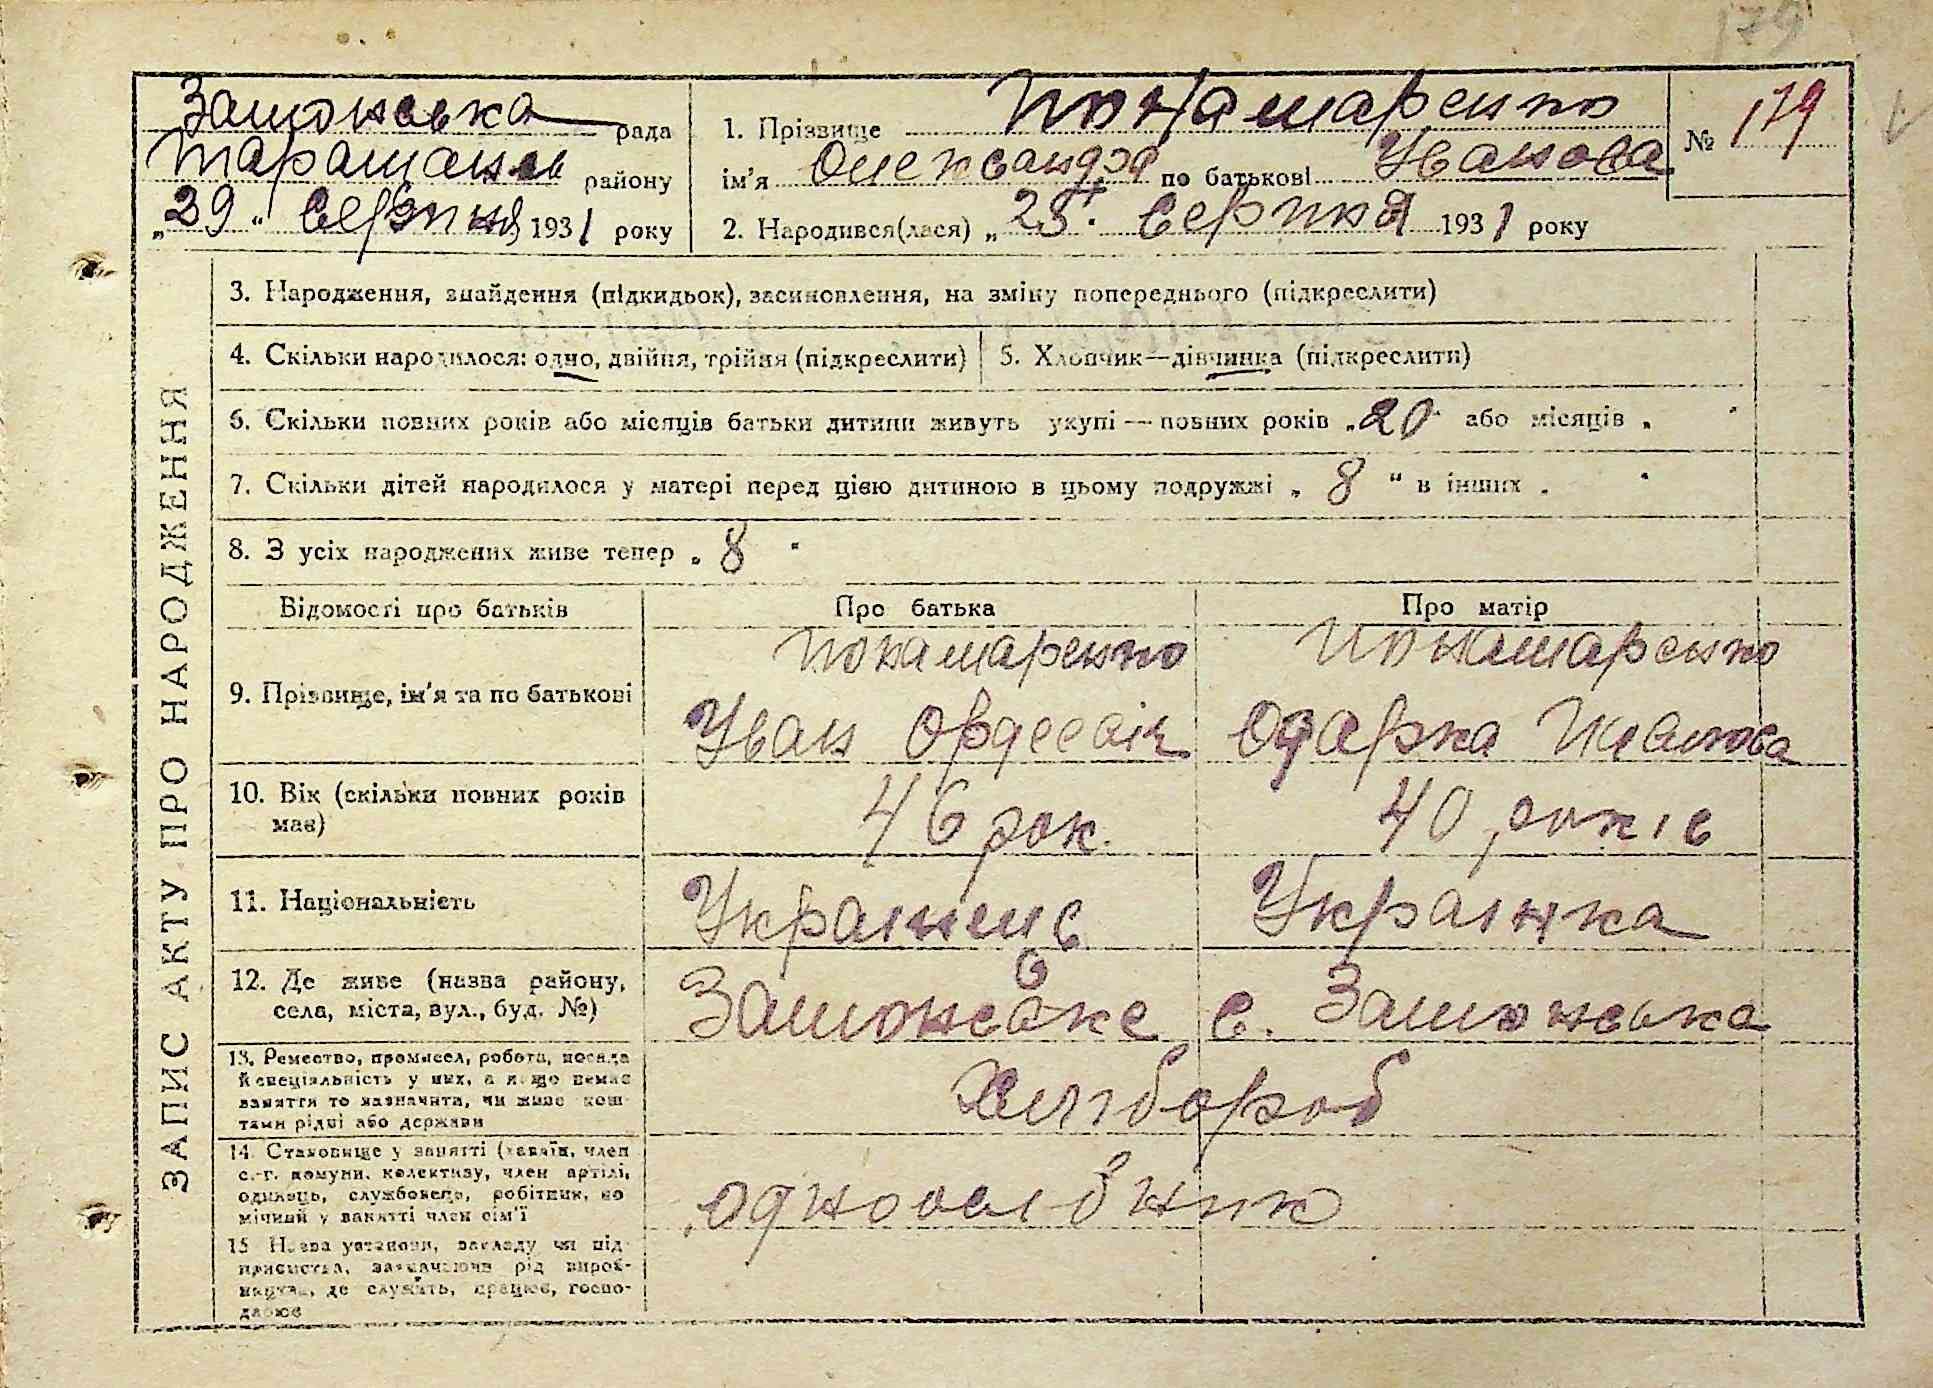 179
Зашонська рада
Таращансь району
„29“ Серпня 1931 року
1. Прізвище Понамаренко
ім'я Олександра по батькові Іванова
2. Народився(лася) „25“ Серпня 1931 року
№ 179
ЗАПИС АКТУ ПРО НАРОДЖЕННЯ
3. Народження, знайдення (підкидьок), засиновлення, на зміну попереднього (підкреслити)
4. Скільки народилося: одно, двійня, трійня (підкреслити)
5. Хлопчик—дівчинка (підкреслити)
6. Скільки повних років або місяців батьки дитини живуть укупі — повних років „20“ або місяців „ “
7. Скільки дітей народилося у матері перед цією дитиною в цьому подружжі „8“ в інших „ “
8. З усіх народжених живе тепер „8“
Відомості про батьків
Про батька
Про матір
9. Прізвище, ім'я та по батькові
Понамаренко
Іван
Понамаренко
Одарка
10. Вік (скільки повних років
має)
46 рок.
40 років
11. Національність
Українець
Українка
12. Де живе (назва району,
села, міста, вул., буд. №)
с. 
13. Ремество, промисел, робота, посада
й спеціяльність у них, а якщо немає
заняття то зазначити, чи живе кош-
тами рідні або держави
Хлібороб
14. Становище у занятті (хазяїн, член
с.-г. комуни, колективу, член артілі,
одинець, службовець, робітник, по
мічний у занятті член сім'ї
одноосібник
15 Назва установи, закладу чи під-
приємства, зазначаючи рід вироб-
ництва, де служить, працює, госпо-
дарює